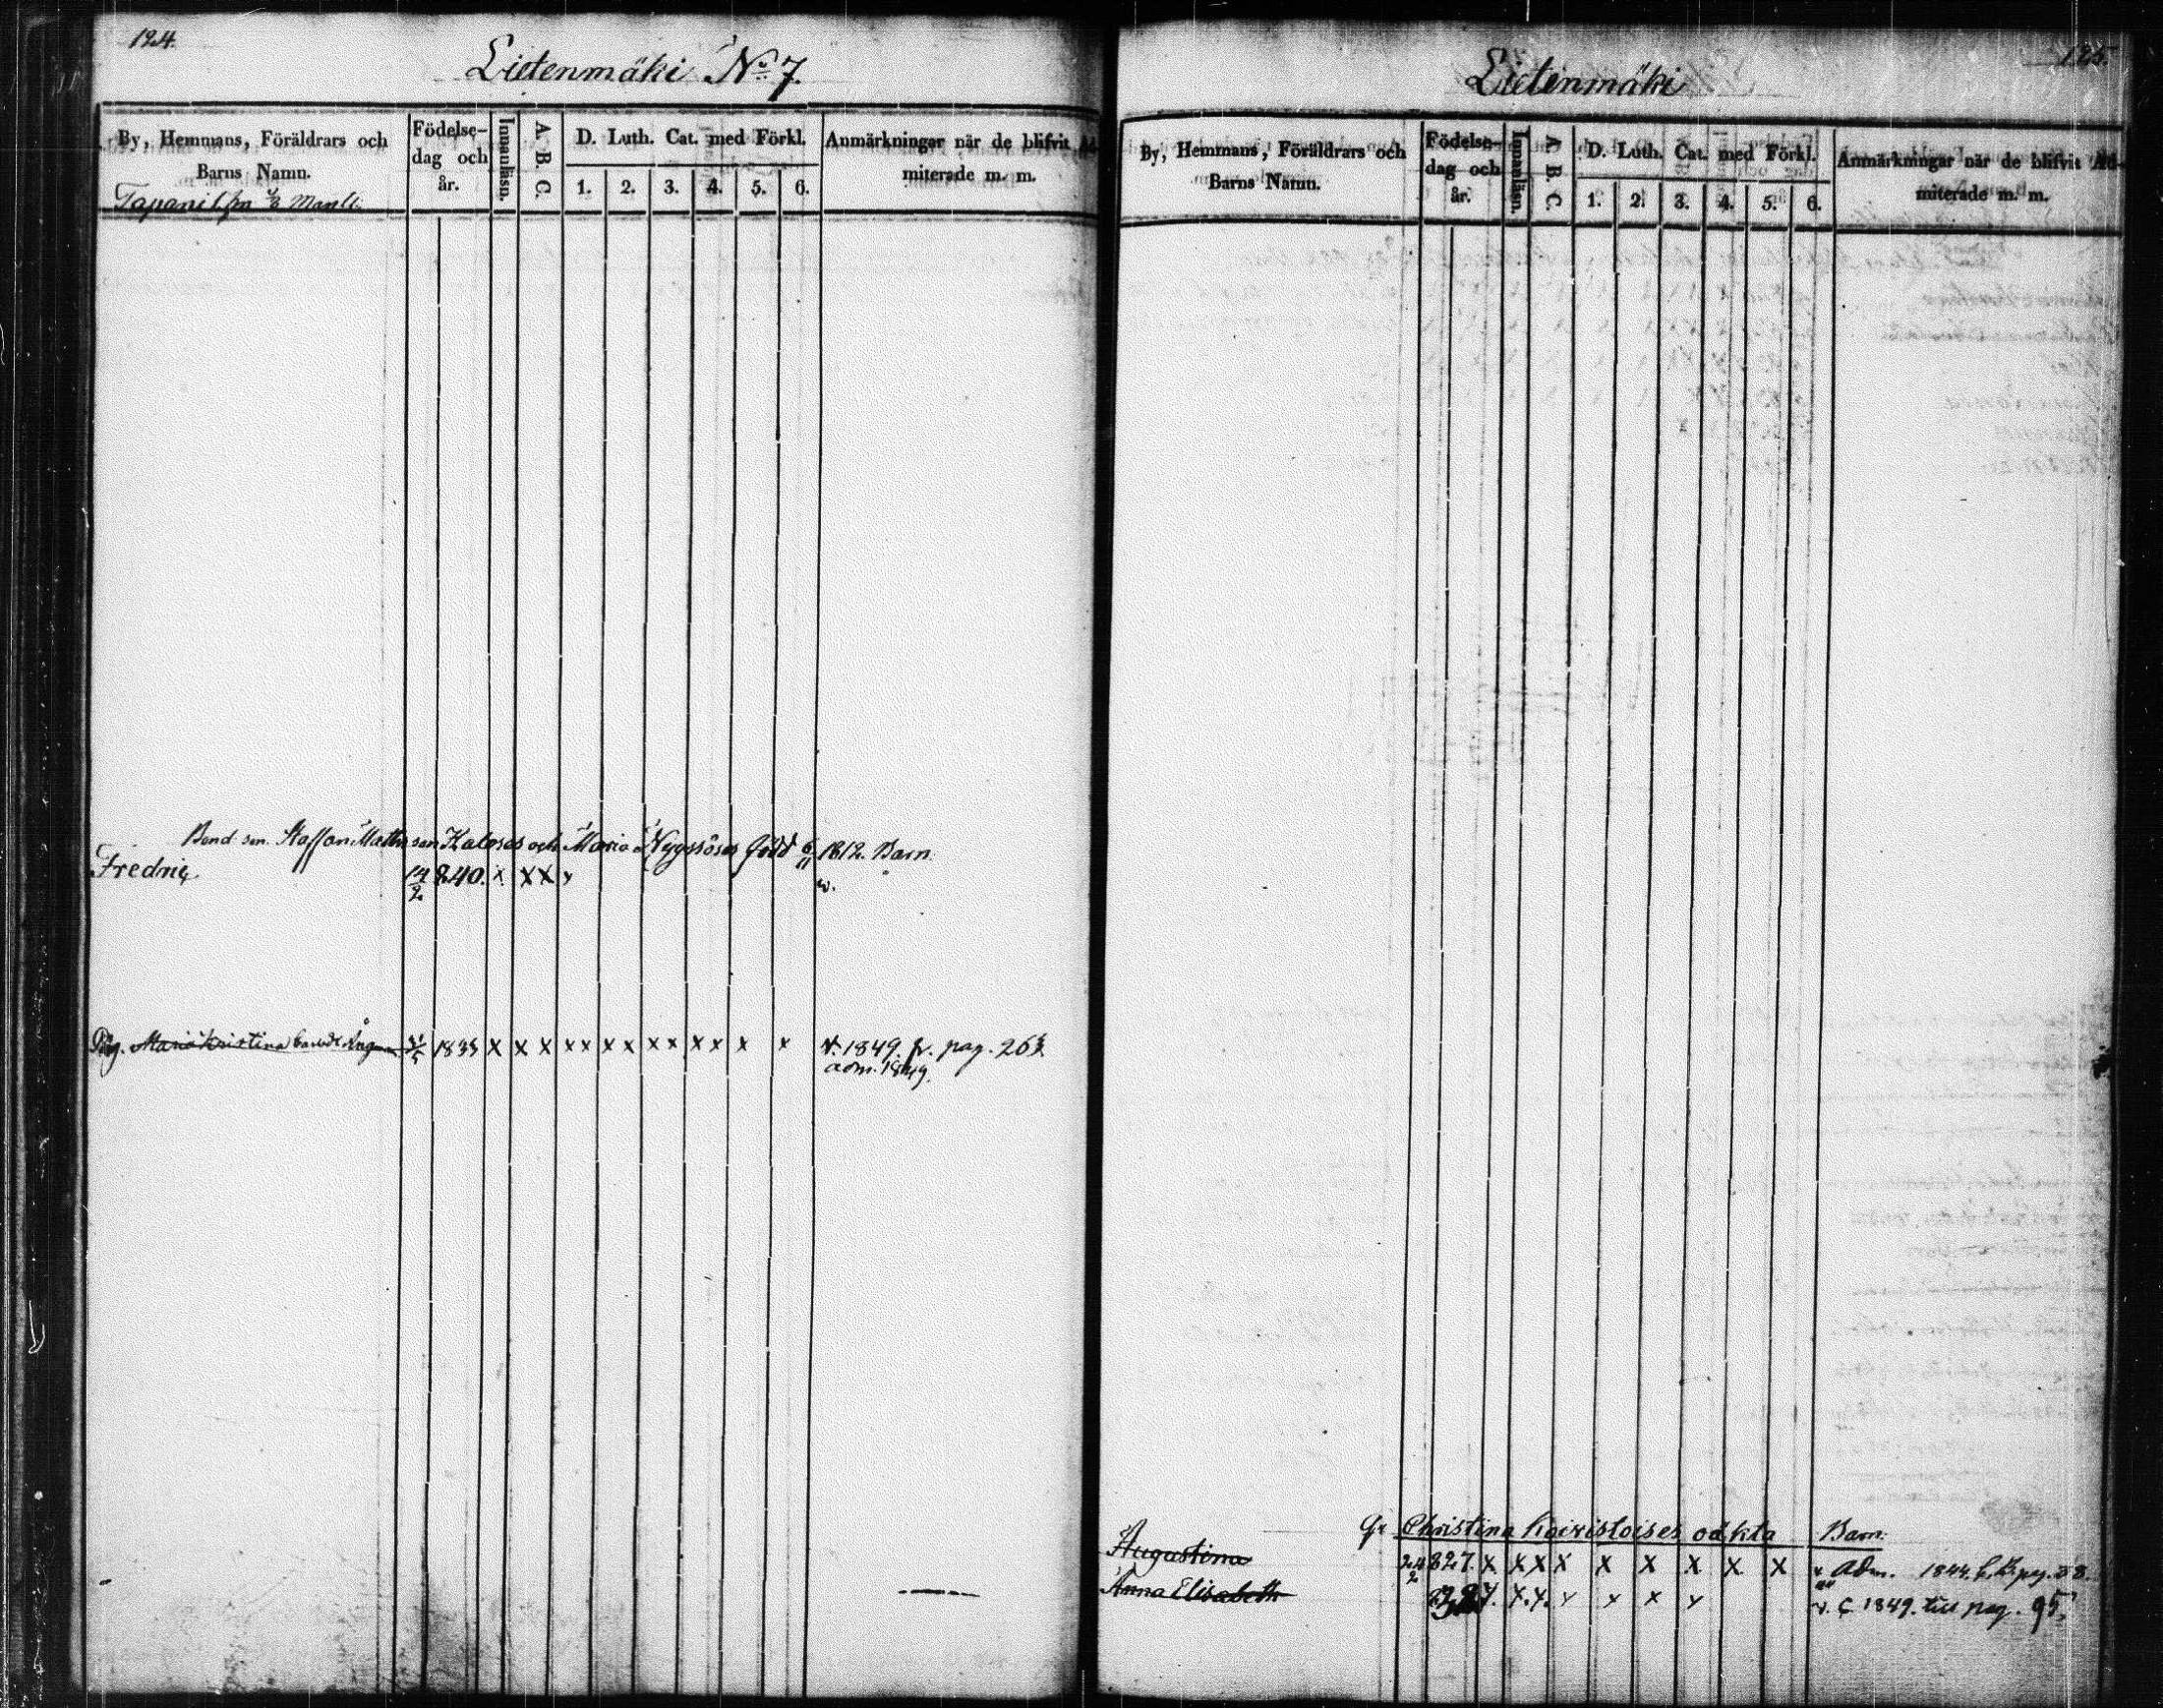 124.
Lietenmäki No 7.
By, Hemmans, Föräldrars och Barns Namn.
Födelse-dag och år.
Innanläsn.
A. B. C.
D. Luth. Cat. med Förkl.
1. 2. 3. 4. 5. 6.
Anmärkningar när de blifvit Ad-miterade m. m.
Staffan Matts son Kaloses och Maria Nyyssöses född 6/11 1812. Barn
Fredric 14/2 840. x x x x v.
Maria Kristina 1835 x x x x x x x x x x x x x v. 1849. fr. pag. 263.
adm. 1849.
125.
Lietenmäki
By, Hemmans, Föräldrars och Barns Namn.
Födelse-dag och år.
Innanläsn.
A. B. C.
D. Luth. Cat. med Förkl.
1. 2. 3. 4. 5. 6.
Anmärkningar när de blifvit Ad-miterade m. m.
Christina Koiristoises oäkta Barn.
Augustina 24/2 827. x x x x x x x x x Adm. 1844. pag. 38.
Anna Elisabeth x x x x x x v. 1849. till pag. 95.